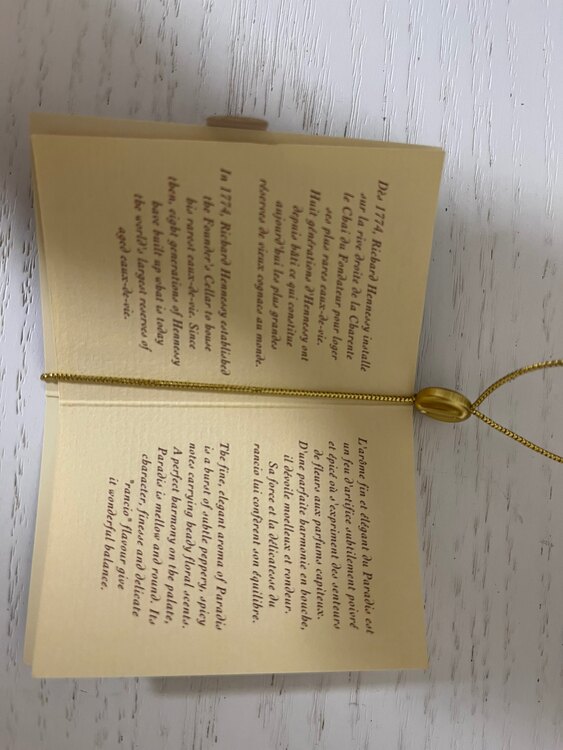 Dès 1774, Richard Hennessy installe
sur la rive droite de la Charente
le Chai du Fondateur pour loger
ses plus rares eaux-de-vie.
Huit générations d'Hennessy ont
depuis bâti ce qui constitue
aujourd'hui les plus grandes
réserves de vieux cognacs au monde.
In 1774, Richard Hennessy established
the Founder's Cellar to house
his rarest eaux-de-vie. Since
then, eight generations of Hennessy
have built up what is today
the world's largest reserves of
aged eaux-de-vie.
L'arôme fin et élégant du Paradis est
un feu d'artifice subtilement poivré
et épicé où s'expriment des senteurs
de fleurs aux parfums capiteux.
D'une parfaite harmonie en bouche,
il dévoile moelleux et rondeur.
Sa force et la délicatesse du
rancio lui confèrent son équilibre.
The fine, elegant aroma of Paradis
is a burst of subtle peppery, spicy
notes carrying heady floral scents.
A perfect harmony on the palate,
Paradis is mellow and round. Its
character, finesse and delicate
"rancio" flavour give
it wonderful balance.